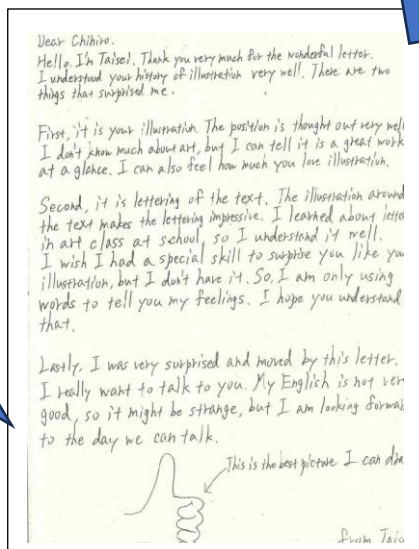 Dear Chihiro.
Hello. I'm Taisei. Thank you very much for the wonderful letter.
I understood your history of illustration very well. There are two
things that surprised me.
First, it is your illustration. The position is thought out very well
I don't know much about art, but I can tell it is a great work
at a glance. I can also feel how much you love illustration.
Second, it is lettering of the text. The illustration around
the text makes the lettering impressive. I learned about
in art class at school, so I understand it well.
I wish I had a special skill to surprise you like
illustration, but I don't have it. So, I am only using
words to tell you my feelings. I hope you understand
that.
Lastly, I was very surprised and moved by this letter.
I really want to talk to you. My English is not
good, so it might be strange, but I am looking
to the day we can talk.
This is the best picture I can
from